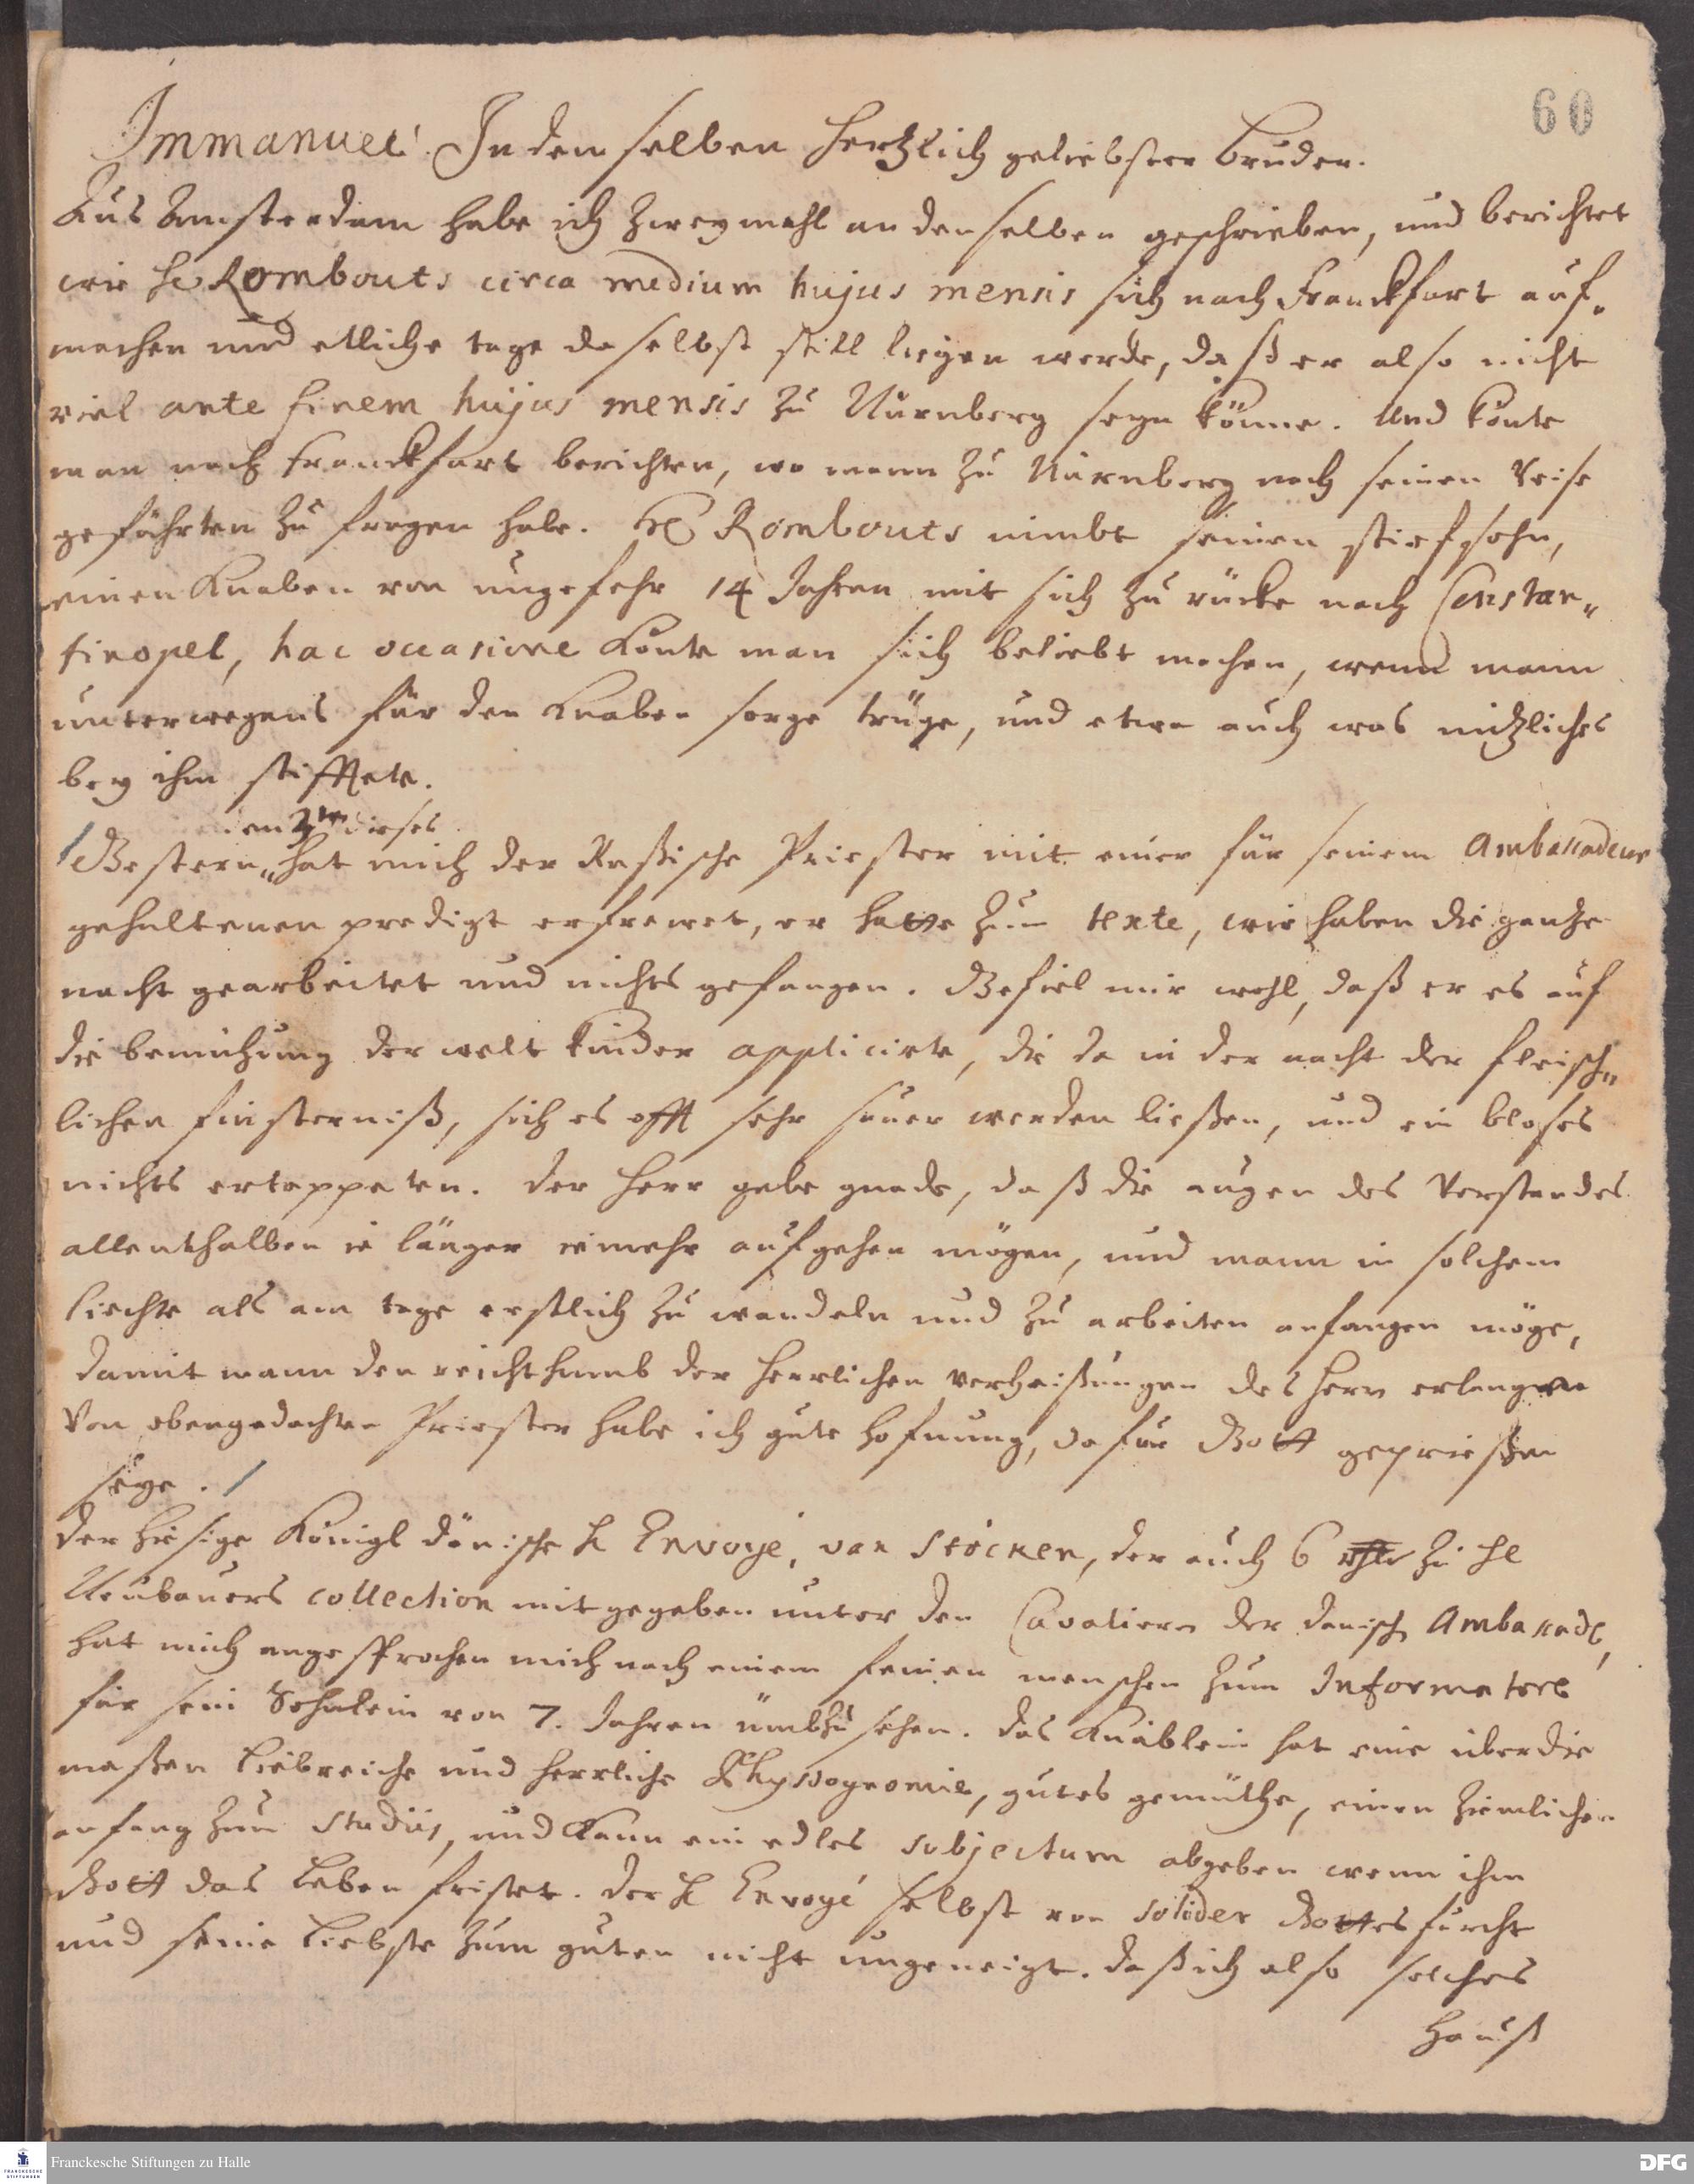 60
Immanuel! In demselben hertzlich geliebster Bruder.
Aus Amsterdam habe ich zweymahl an denselben geschrieben, und berichtet
wie H. Rombouts circa medium hujus mensis sich nach Franckfort auf-
machen und etliche tage daselbst still liegen werde, daß er also nicht
viel ante finem hujus mensis zu Nürnberg seyn könne. Und könte
man nach Franckfort berichten, wo mann zu Nürnberg nach seinen Reise
gefährten zu fragen habe. H. Rombouts nimbt seinen stiefsohn,
einen Knaben von ungefehr 14 Jahren mit sich zu rücke nach Constan-
tinopel, hac occasione könte man sich beliebt machen, wenn mann
unterwegens für den Knaben sorge trüge, und etwa auch was nützliches
bey ihm stifftete.
den 2ten dieses
Gestern hat mich der Rußische Priester mit einer für seinem Ambassadeur
gehaltenen predigt erfrewet, er hatte zum texte, wir haben die gantze
nacht gearbeitet und nichts gefangen. Gefiel mir wohl, daß er es auf
die bemühung der welt kinder applicirte, die da in der nacht der fleisch-
lichen finsterniß, sich es offt sehr sauer werden ließen, und ein bloses
nichts ertappeten. Der Herr gebe gnade, daß die augen des Verstandes
allenthalben ie länger ie mehr aufgehen mögen, und mann in solchem
liechte als am tage erstlich zu wandeln und zu arbeiten anfangen möge,
damit mann den reichthumb der herrlichen verheißungen des Herrn erlange
Von obengedachten Priester habe ich gute hofnung, dafür Gott geprießen
seye.
Der hiesige Königl dänische H Envoyé, von Stöcken, der auch 6 zu H
Neubauers collection mitgegeben unter den Cavaliern der dänisch Ambassade,
hat mich angesprochen mich nach einem feinen menschen zum Informatore
für sein Söhnlein von 7. Jahren ümbzusehen. Das Knäblein hat eine überdie
maßen liebreiche und herrliche Physiognomie, gutes gemüthe, einen ziemlichen
anfang zum studiis, und kann ein edles subjectum abgeben wenn ihm
Gott das Leben fristet. Der H Envoyé selbst von solider Gottes furcht
und seine Liebste zum guten nicht ungeneigt. daß ich also solches
Hauß
Franckesche Stiftungen zu Halle
FRANCKESCHE STIFTUNGEN
DFG